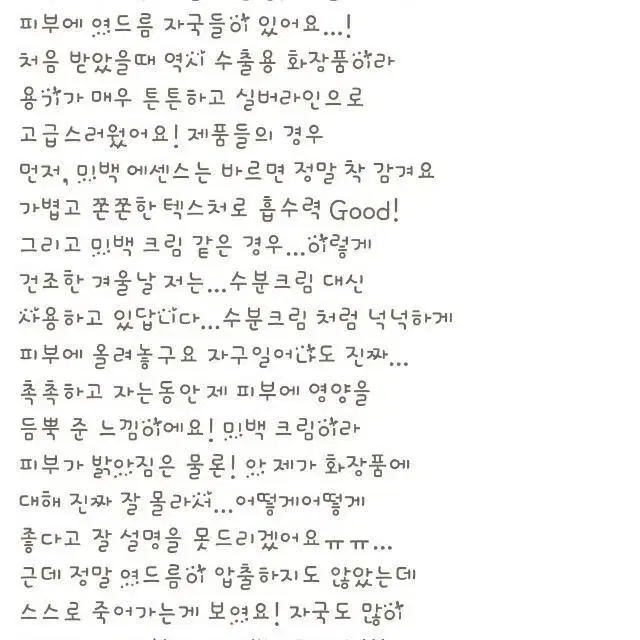 피부에 여드름 자국들이 있어요...!
처음 받았을때 역시 수출용 화장품이라
용기가 매우 튼튼하고 실버라인으로
고급스러웠어요! 제품들의 경우
먼저, 미백 에센스는 바르면 정말 착 감겨요
가볍고 쫀쫀한 텍스처로 흡수력 Good!
그리고 미백 크림 같은 경우...이렇게
건조한 겨울날 저는...수분크림 대신
사용하고 있답니다...수분크림 처럼 넉넉하게
피부에 올려놓구요 자구일어나도 진짜...
촉촉하고 자는동안 제 피부에 영양을
듬뿍 준 느낌이에요! 미백 크림이라
피부가 밝아짐은 물론! 아 제가 화장품에
대해 진짜 잘 몰라서...어떻게어떻게
좋다고 잘 설명을 못드리겠어요ㅠㅠ...
근데 정말 여드름이 압출하지도 않았는데
스스로 죽어가는게 보여요! 자국도 많이